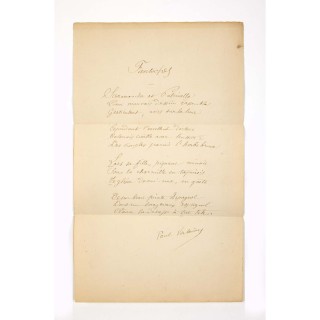 Fantoches
Scaramouche et Pulcinella
Qu'un mauvais dessein rassembla
Gesticulent, noirs sur la lune
Cependant l'excellent docteur
Bolonais cueille avec lenteur
Des simples parmi l'herbe brune
Lors sa fille, piquant minois
Sous la charmille en tapinois
Se glisse demi-nue, en quête
De son beau pirate espagnol
langoureux rossignol
Clame la détresse à tue-tête
Paul Verlaine